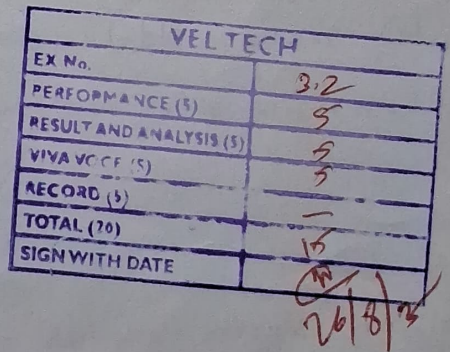 VEL TECH
EX No. 3.2
PERFORMANCE (5) 5
RESULT AND ANALYSIS (5) 5
VIVA VOCE (5) 5
RECORD (5) —
TOTAL (20) 15
SIGN WITH DATE
26/8/